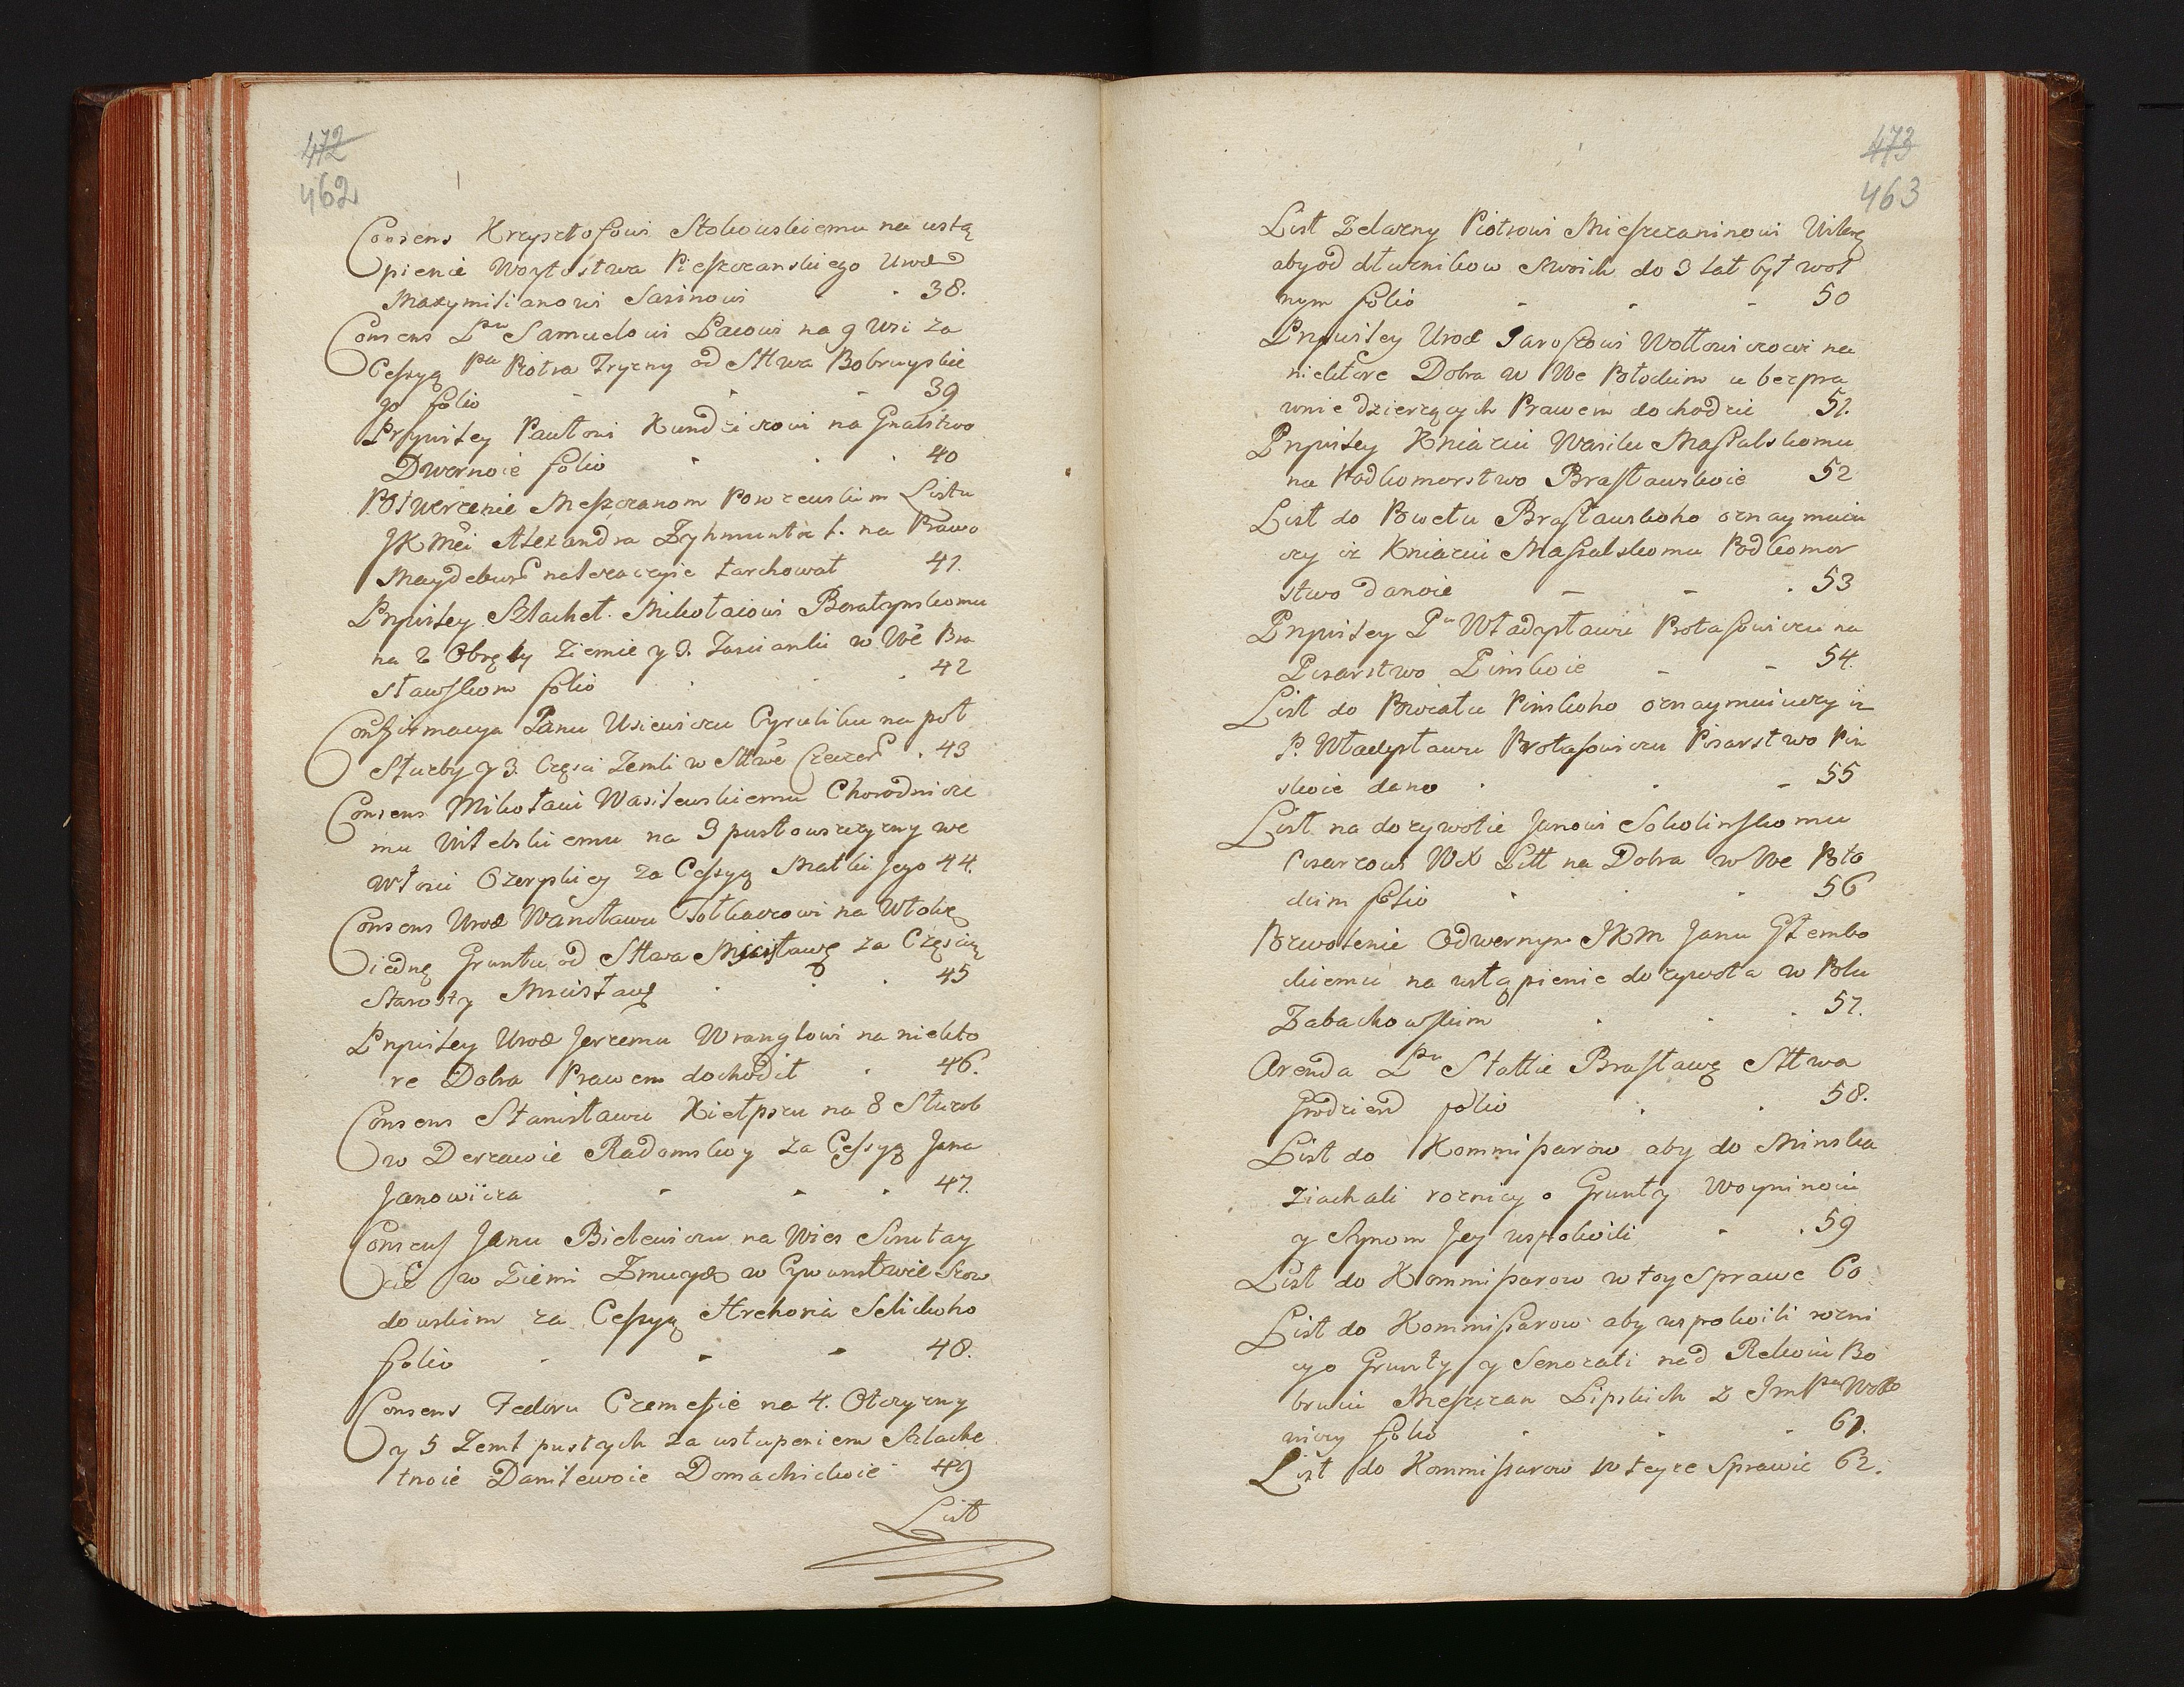 472
462
Consens Krzysztofowi Stokowskiemu na ustą
pienie Woytostwa Pieszczanskiego Urod
Maxymilianowi Sasinowi 38.
Consens Pu Samuelowi Pacowi na 9 Wsi za
Cessyą Pa Piotra Tryzny od Sttwa Bobruyskie
go folio 39
Prÿwiley Pawłowi Kundzicowi na Gnalstwo
Dwornoie folio 40
Potwerżenie Meszczanom Powzeuskim Listu
JKMci Alexandra Zyhmunta I. na Prawo
Maydebur na Iezaczyie tarchowat 41.
Prÿwiley Szlachet. Mikołaiowi Boratynskomu
na 2 Obręby Ziemie y 3. Zascianki w We Bra
sławskom folio 42
Confirmacya Panu Usiewiczu Cyruliku na poł
Służby y 3. Części Zemli w Sttwe Czeczer 43
Consens Mikołaiu Wasilewskiemu Chorodnicze
mu Vitebskiemu na 3 pustowszczyzny we
włosci Ozerÿskiey za Cessyą Matki Jego 44.
Consens Urod Wancławu Połkaczowi na Włokę
iednę Gruntu od Sttwa Mscisławę za Częścią
Starosty Mscisławę 45
Prÿwiley Urod Jerzemu Wranglowi na niekto
re Dobra Prawem dochodit 46.
Consens Stanisławu Kiełpszu na 8 Służob
w Derzawie Radomskoy za Cessyą Jana
Janowicza 47.
Consens Janu Bielewiczu na Wies Suntay
cie w Ziemi Zmuyd w Cywunstwie Skow
dowskim za Cessyą Hrehoria Selickoho
folio 48.
Consens Fedoru Czemesie na 4. Otczyzny
y 5 Zeml pustych za ustupeniem Szlache
tnoie Danilewoie Domachickoie 49
List
473
463
List Zelazny Piotrowi Mieszczaninowi Wilenę
aby od dłużnikow swoich do 3 lat był wol
nym folio 50
Prÿwiley Urod Jaroszowi Wołłowiczowi na
niektore Dobra w We Połockim u bezpra
wnie dzierzących Prawem dochodzić 51.
Prÿwiley Kniaziu Wasilu Massalskomu
na Podkomorstwo Brasławskoie 52
List do Powetu Brasławskoho oznaymuiu
czy iz Kniaziu Massalskomu Podkomor
stwo danoie 53
Prÿwiley Pu Władysławu Protasowiczu na
Pisarstwo Pinskoie 54.
List do Powiatu Pinskoho oznaymuiuczy iz
P. Władysławu Protasowiczu Pisarstwo Pin
skoie dano 55
List na dożywotie Janowi Sokolinskomu
Pisarzowi WX Litt na Dobra w We Poło
ckim folio 56
Pozwolenie Odwernym JKM Janu Głembo
ckiemu na ustąpienie dożywota w Polu
Zabachowskim 57.
Arenda Pu Statkie Brasławę Sttwa
Grodzien folio 58.
List do Kommissarow aby do Minska
ziachali roznicy o Grunty Woyninoiu
y Synom Jey uspokoili 59
List do Kommissarow w toy Sprawe 60.
List do Kommissarow aby uspokoili rozni
cy o Grunty y Senozati nad Rekoiu Bo
broiu Meszczan Lipskich z Jmś Pa Woło
niczy folio 61.
List do Kommissarow w teyze Sprawie 62.